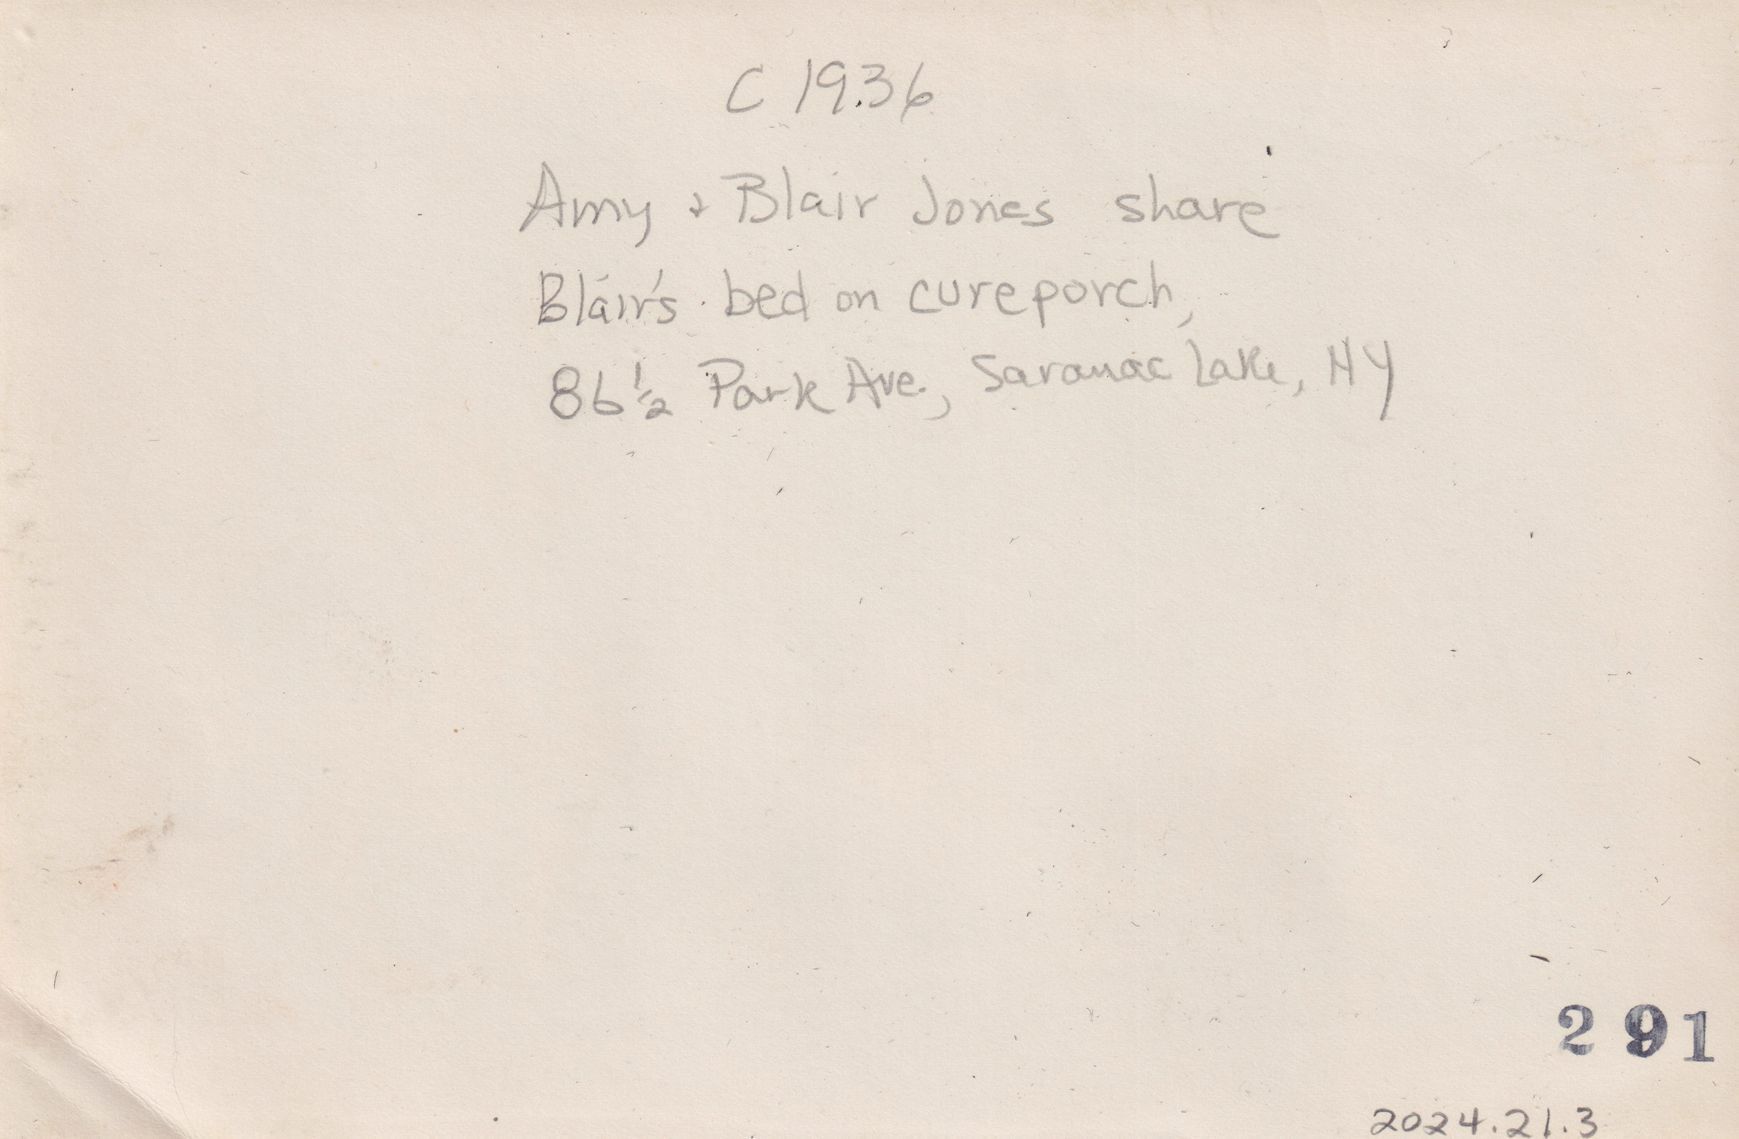 C 1936
Amy & Blair Jones share
Blair's bed on cureporch,
86 1/2 Park Ave., Saranac Lake, NY
291
2024.21.3